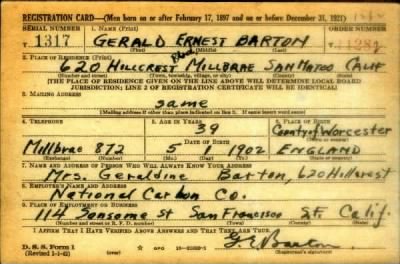 REGISTRATION CARD—(Men born on or after February 17, 1897 and on or before December 31, 1921)
SERIAL NUMBER 1. NAME (Print) ORDER NUMBER
T 1317 GERALD ERNEST BARTON
(First) (Middle) (Last)
2. PLACE OF RESIDENCE (Print)
620 HILLCREST Blvd MILLBRAE SAN MATEO CALIF
(Number and street) (Town, township, village, or city) (County) (State)
[THE PLACE OF RESIDENCE GIVEN ON THE LINE ABOVE WILL DETERMINE LOCAL BOARD
JURISDICTION; LINE 2 OF REGISTRATION CERTIFICATE WILL BE IDENTICAL]
3. MAILING ADDRESS
same
[Mailing address if other than place indicated on line 2. If same insert word same]
4. TELEPHONE 5. AGE IN YEARS 6. PLACE OF BIRTH
39 County of Worcester
DATE OF BIRTH (Town or county)
Millbrae 872 5 1 1902 ENGLAND
(Exchange) (Number) (Mo.) (Day) (Yr.) (State or country)
7. NAME AND ADDRESS OF PERSON WHO WILL ALWAYS KNOW YOUR ADDRESS
Mrs. Geraldine Barton, 620 Hillcrest
8. EMPLOYER'S NAME AND ADDRESS
National Carbon Co.
9. PLACE OF EMPLOYMENT OR BUSINESS
114 Sansome St San Francisco S.F. Calif.
(Number and street or R. F. D. number) (Town) (County) (State)
I AFFIRM THAT I HAVE VERIFIED ABOVE ANSWERS AND THAT THEY ARE TRUE.
D. S. S. Form 1
(Revised 1-1-42) (over) GE Barton
(Registrant's signature)